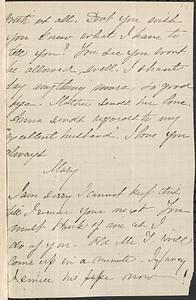 with us all. Don't you wish
you knew what I have to
tell you? You see you wont
be allowed, well, I shant
say anything more, so good
bye. Mother sends her love
Anna sends regards to my
"excellent husband". I love you
always
Mary
I am sorry I cannot keep this
till I receive your next. You
must think of me as I
do of you. Mr T. will
come up in a minute.
I since his now